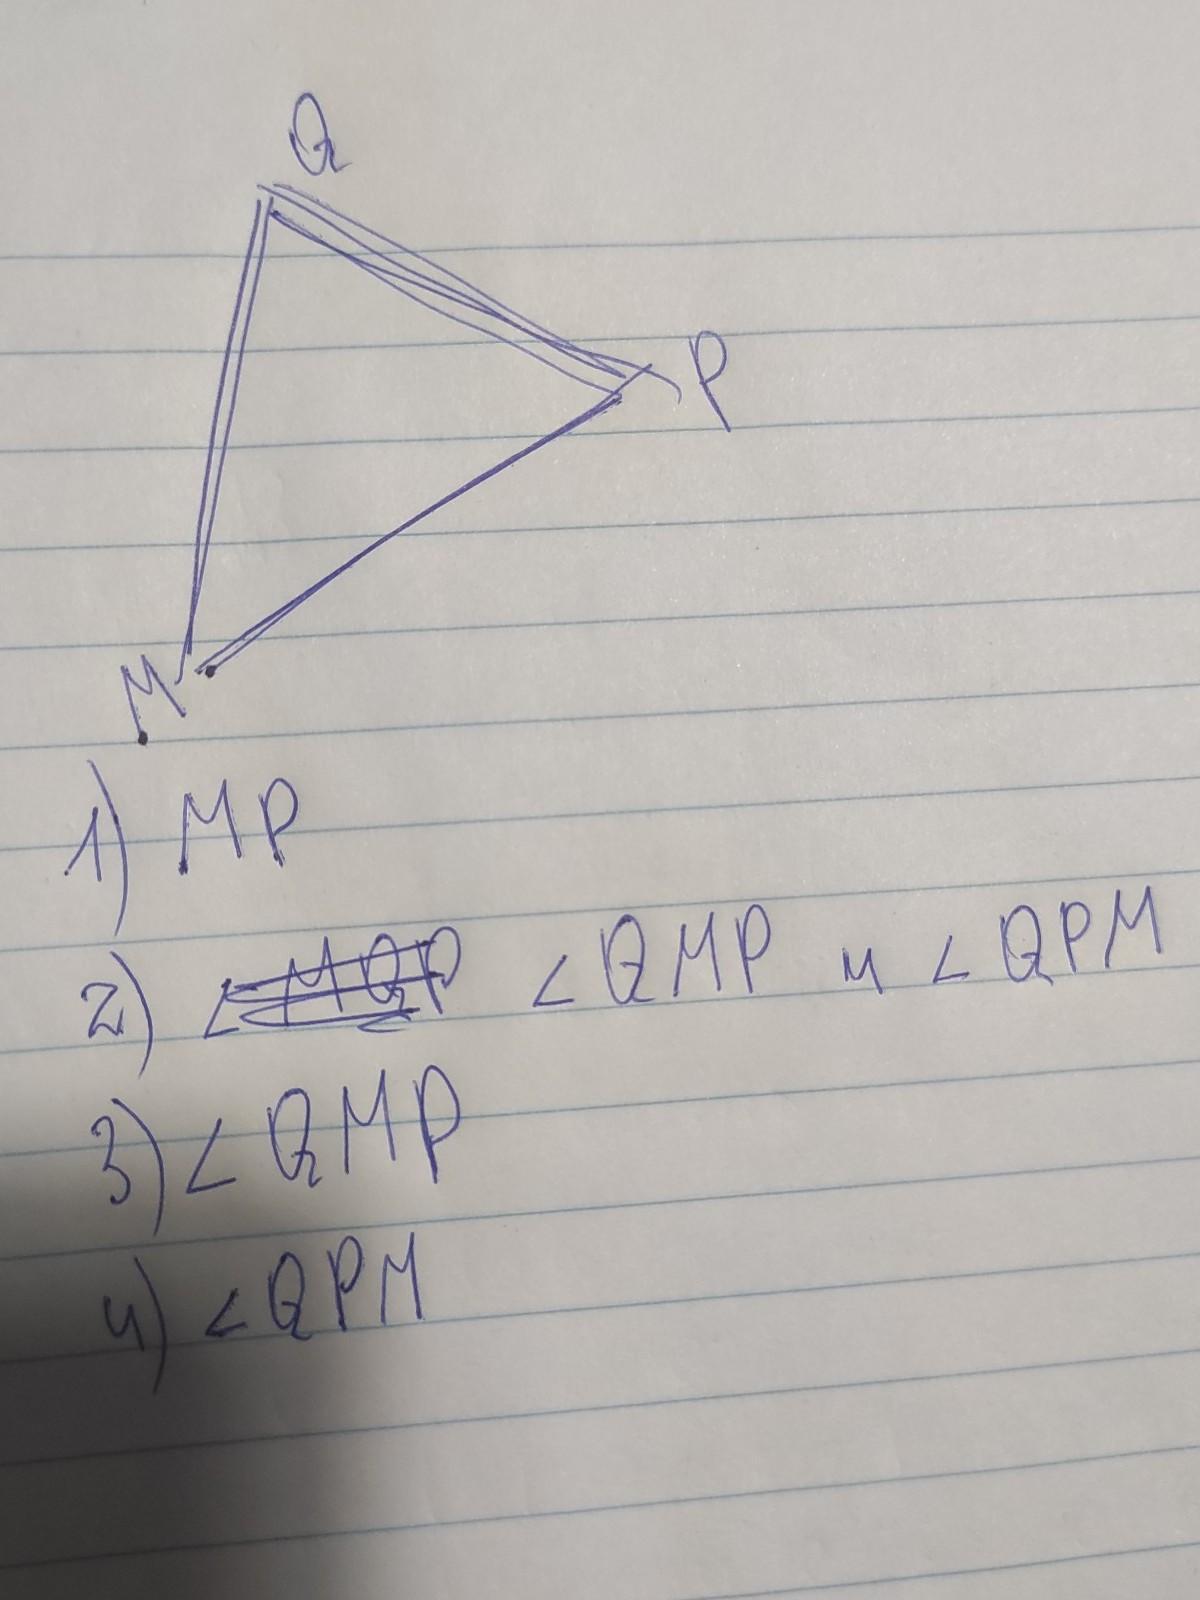 Q
P
M
1) MP
2) ∠MQP ∠QMP и ∠QPM
3) ∠QMP
4) ∠QPM